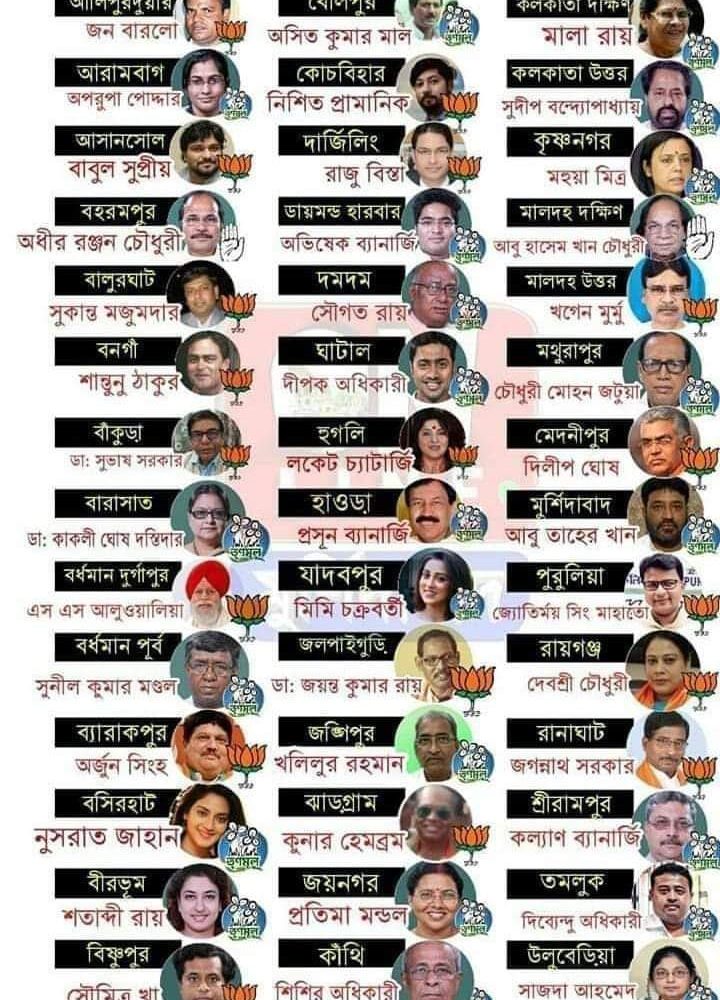 আলিপুরদুয়ার
জন বারলো
আরামবাগ
অপরুপা পোদ্দার
আসানসোল
বাবুল সুপ্রীয়
বহরমপুর
অধীর রঞ্জন চৌধুরী
বালুরঘাট
সুকান্ত মজুমদার
বনগাঁ
শান্তুনু ঠাকুর
বাঁকুড়া
ডা: সুভাষ সরকার
বারাসাত
ডা: কাকলী ঘোষ দস্তিদার
বর্ধমান দুর্গাপুর
এস এস আলুওয়ালিয়া
বর্ধমান পূর্ব
সুনীল কুমার মণ্ডল
ব্যারাকপুর
অর্জুন সিংহ
বসিরহাট
নুসরাত জাহান
বীরভূম
শতাব্দী রায়
বিষ্ণুপুর
সৌমিত্র খা
বোলপুর
অসিত কুমার মাল
কোচবিহার
নিশিত প্রামানিক
দার্জিলিং
রাজু বিস্তা
ডায়মন্ড হারবার
অভিষেক ব্যানার্জি
দমদম
সৌগত রায়
ঘাটাল
দীপক অধিকারী
হুগলি
লকেট চ্যাটার্জি
হাওড়া
প্রসূন ব্যানার্জি
যাদবপুর
মিমি চক্রবর্তী
জলপাইগুড়ি
ডা: জয়ন্ত কুমার রায়
জঙ্গিপুর
খলিলুর রহমান
ঝাড়গ্রাম
কুনার হেমব্রম
জয়নগর
প্রতিমা মন্ডল
কাঁথি
শিশির অধিকারী
কলকাতা দক্ষিণ
মালা রায়
কলকাতা উত্তর
সুদীপ বন্দ্যোপাধ্যায়
কৃষ্ণনগর
মহুয়া মিত্র
মালদহ দক্ষিণ
আবু হাসেম খান চৌধুরী
মালদহ উত্তর
খগেন মুর্মু
মথুরাপুর
চৌধুরী মোহন জটুয়া
মেদনীপুর
দিলীপ ঘোষ
মুর্শিদাবাদ
আবু তাহের খান
পুরুলিয়া
জ্যোতির্ময় সিং মাহাতো
রায়গঞ্জ
দেবশ্রী চৌধুরী
রানাঘাট
জগন্নাথ সরকার
শ্রীরামপুর
কল্যাণ ব্যানার্জি
তমলুক
দিব্যেন্দু অধিকারী
উলুবেড়িয়া
সাজদা আহমেদ